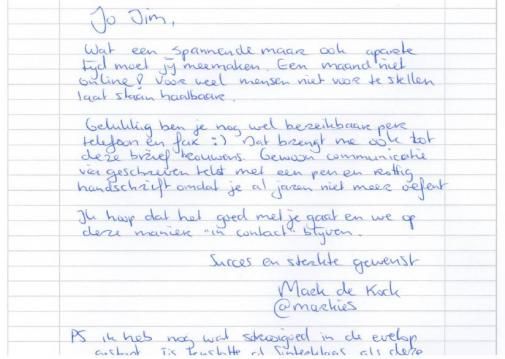 Jo Jim,
Wat een spannende maar ook aparte
tijd moet jij meemaken. Een maand niet
online! Voor veel mensen niet voor te stellen
laat staan haalbaar.
Gelukkig ben je nog wel bereikbaar per
telefoon en fax :) Dat brengt me ook tot
deze brief trouwens. Gewoon communicatie
via geschreven tekst met een pen en rottig
handschrift omdat je al jaren niet meer oefent
Ik hoop dat het goed met je gaat en we op
deze manier "in contact" blijven.
Succes en sterkte gewenst
Mark de Kock
@markies
PS ik heb nog wat strooigoed in de